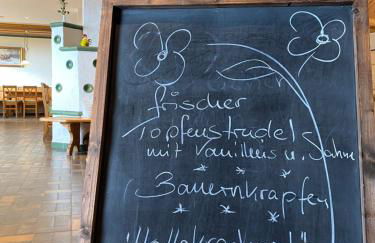 frischer
Topfenstrudel
mit Vanilleeis u. Sahne
Bauernkrapfen